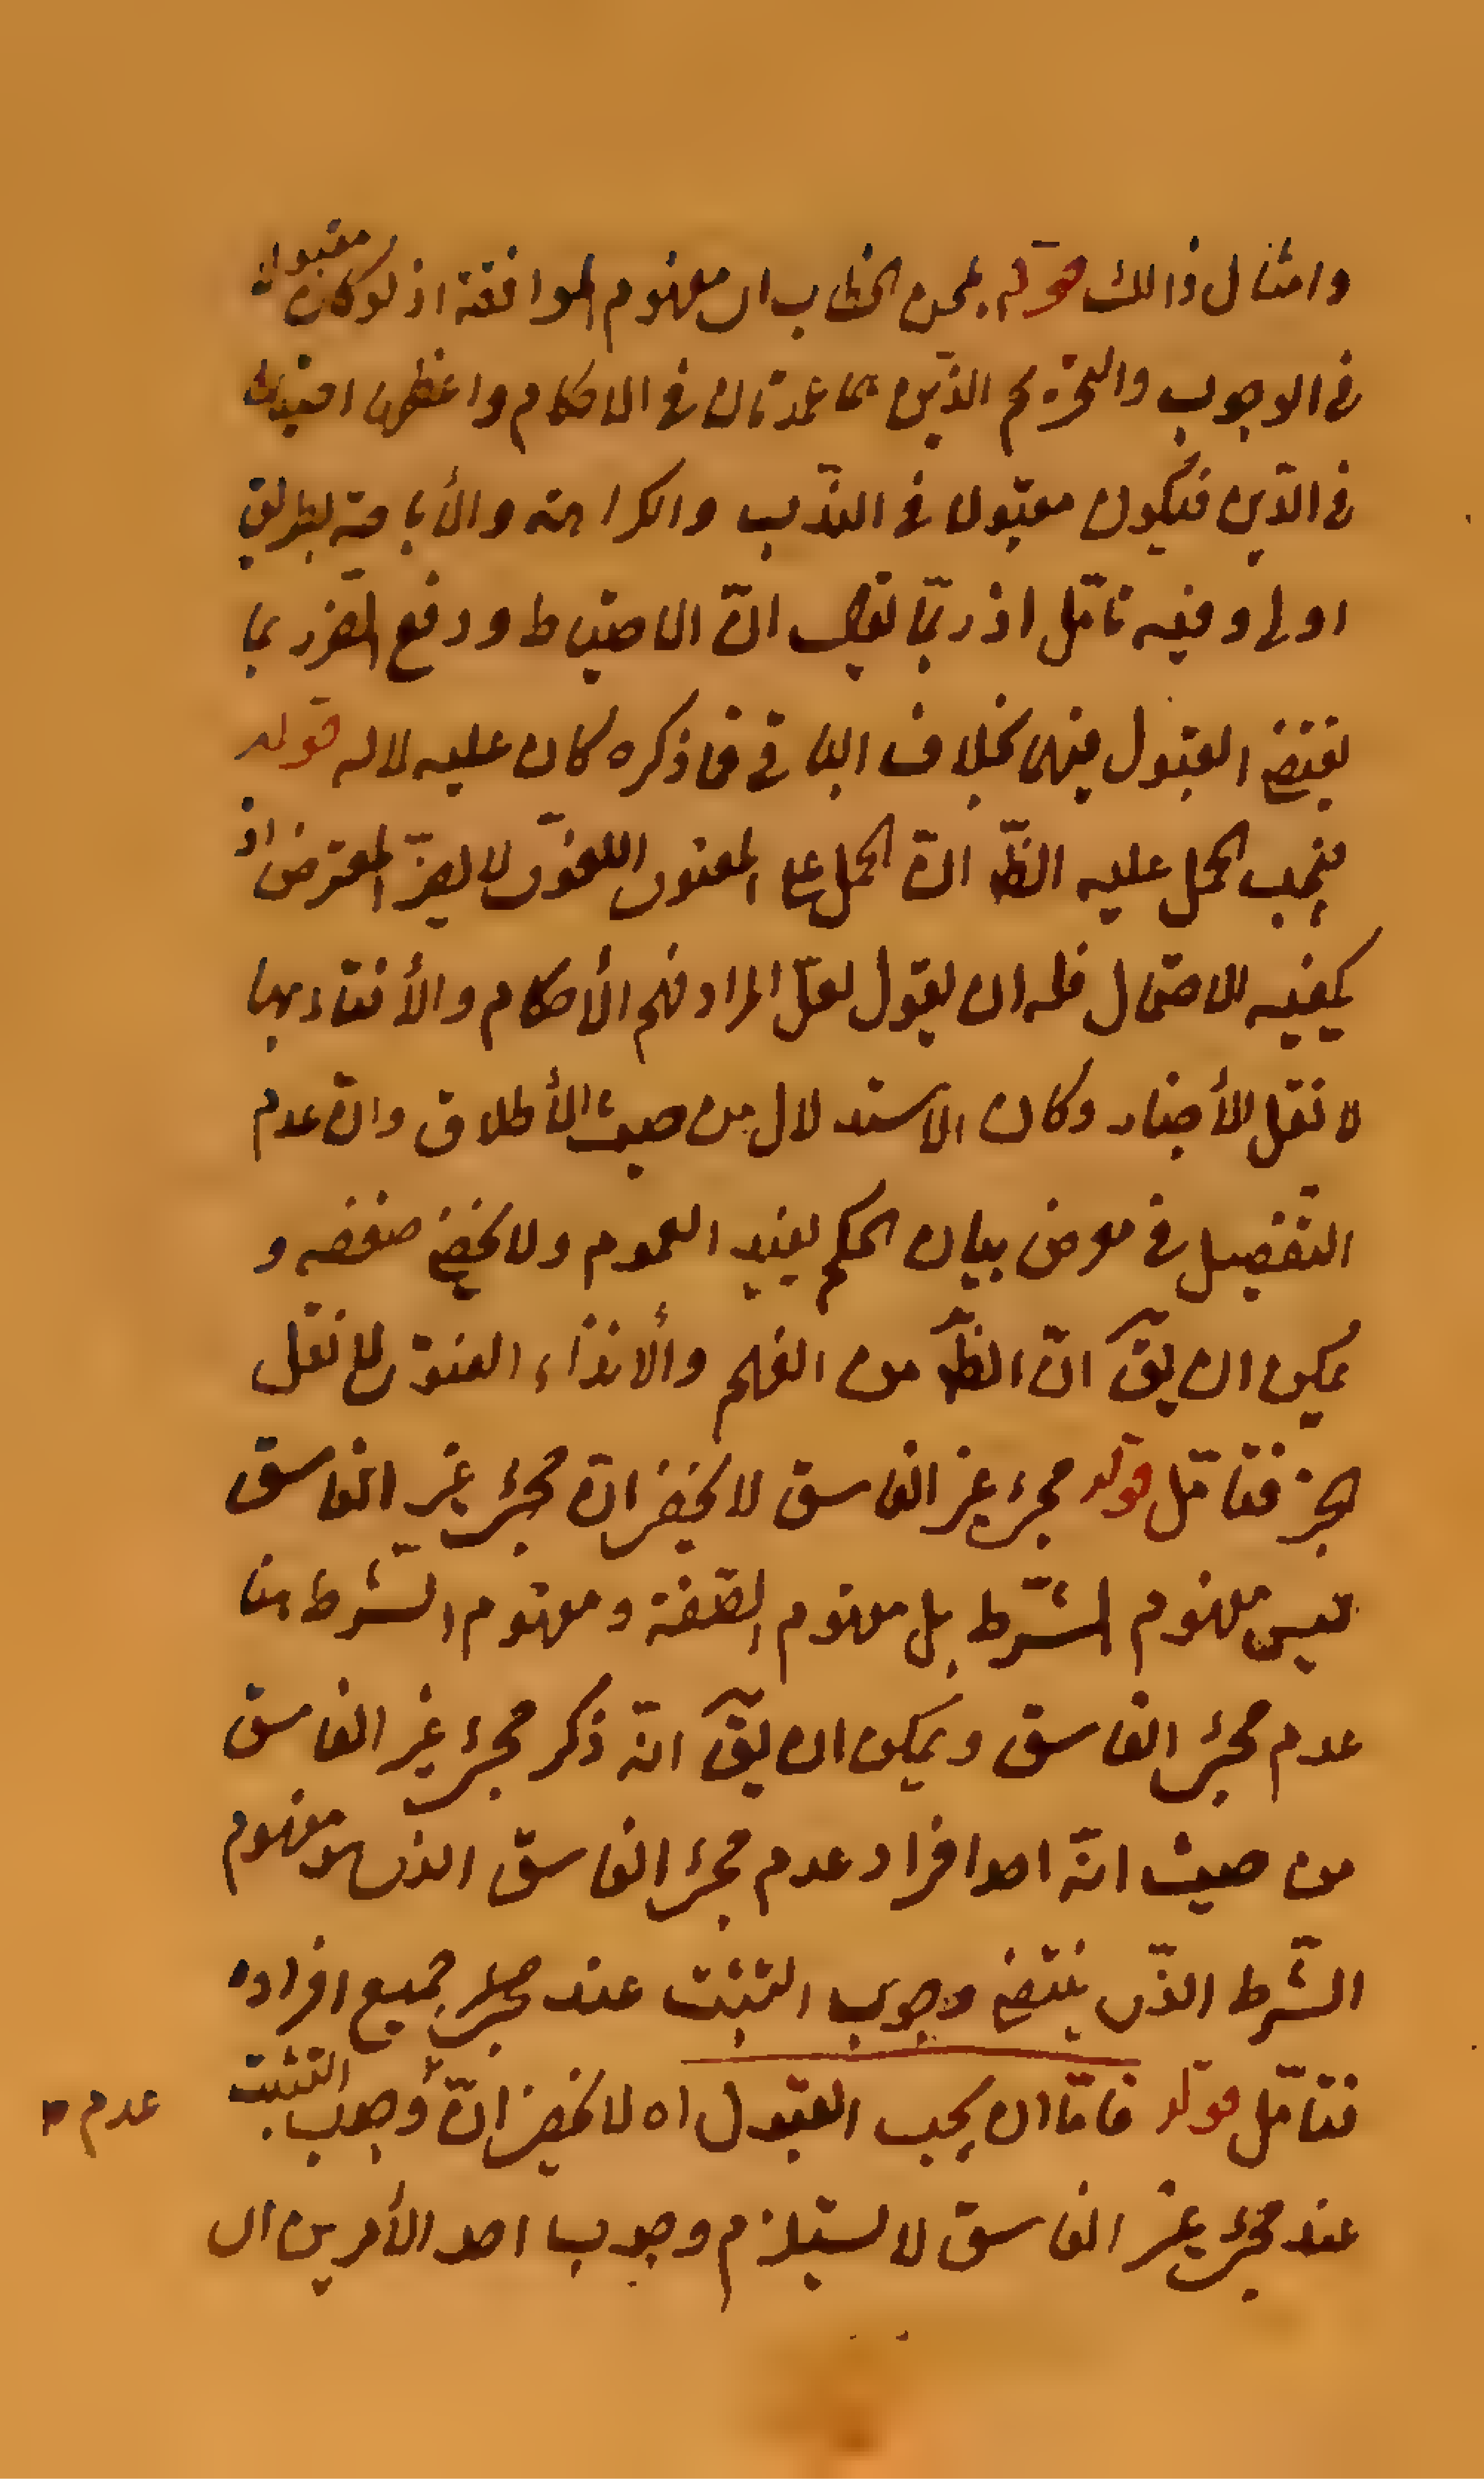 وامثال ذالك قوله بلحن الخطاب اى مفهوم الموافقة اذ لو كان مقبولا
فى الوجوب والتحريم الذين هما عمدتان فى الاحكام واعظمها احتياطا
فى الدّين فيكون مقبولا فى الندّب والكراهة والأباحة بطريق
اولى وفيه تامّل اذ ربّما يقال انّ الاحتياط ودفع الضّرر بما
يقتضى القبول فيهما بخلاف الباقى فما ذكره كان عليه لا له قوله
فيجب الحمل عليه الظّ انّ الحمل على المعنى اللغوىّ لا يضرّ المعترض اذ
يكفيه الاحتمال فله ان يقول لعلّ المراد فهم الأحكام والأفتاء بها
لا نقل الأخبار وكان الاستدلال من حيث الأطلاق وانّ عدم
التّفصيل فى معرض بيان الحكم يفيد العموم ولا يخفى ضعفه و
يمكن ان يقّ انّ الظّ من الفهم والأنذار الفتوى لا نقل
الخبر فتامّل قوله مجىء غير الفاسق لا يخفى انّ مجىء غير الفاسق
ليس مفهوم الشّرط بل مفهوم الصّفة ومفهوم الشّرط هنا
عدم مجىء الفاسق ويمكن ان يقّ انّه ذكر مجىء غير الفاسق
من حيث انّه احد افراد عدم مجىء الفاسق الذى هو مفهوم
الشّرط الذّى ينتفى وجوب التثبّت عند جميع افراده
فتامّل قوله فامّا ان يجب القبول اه لا يخفى انّ وجوب التثبت
عدم
عند مجىء غير الفاسق لا يستلزم وجوب احد الأمرين اى